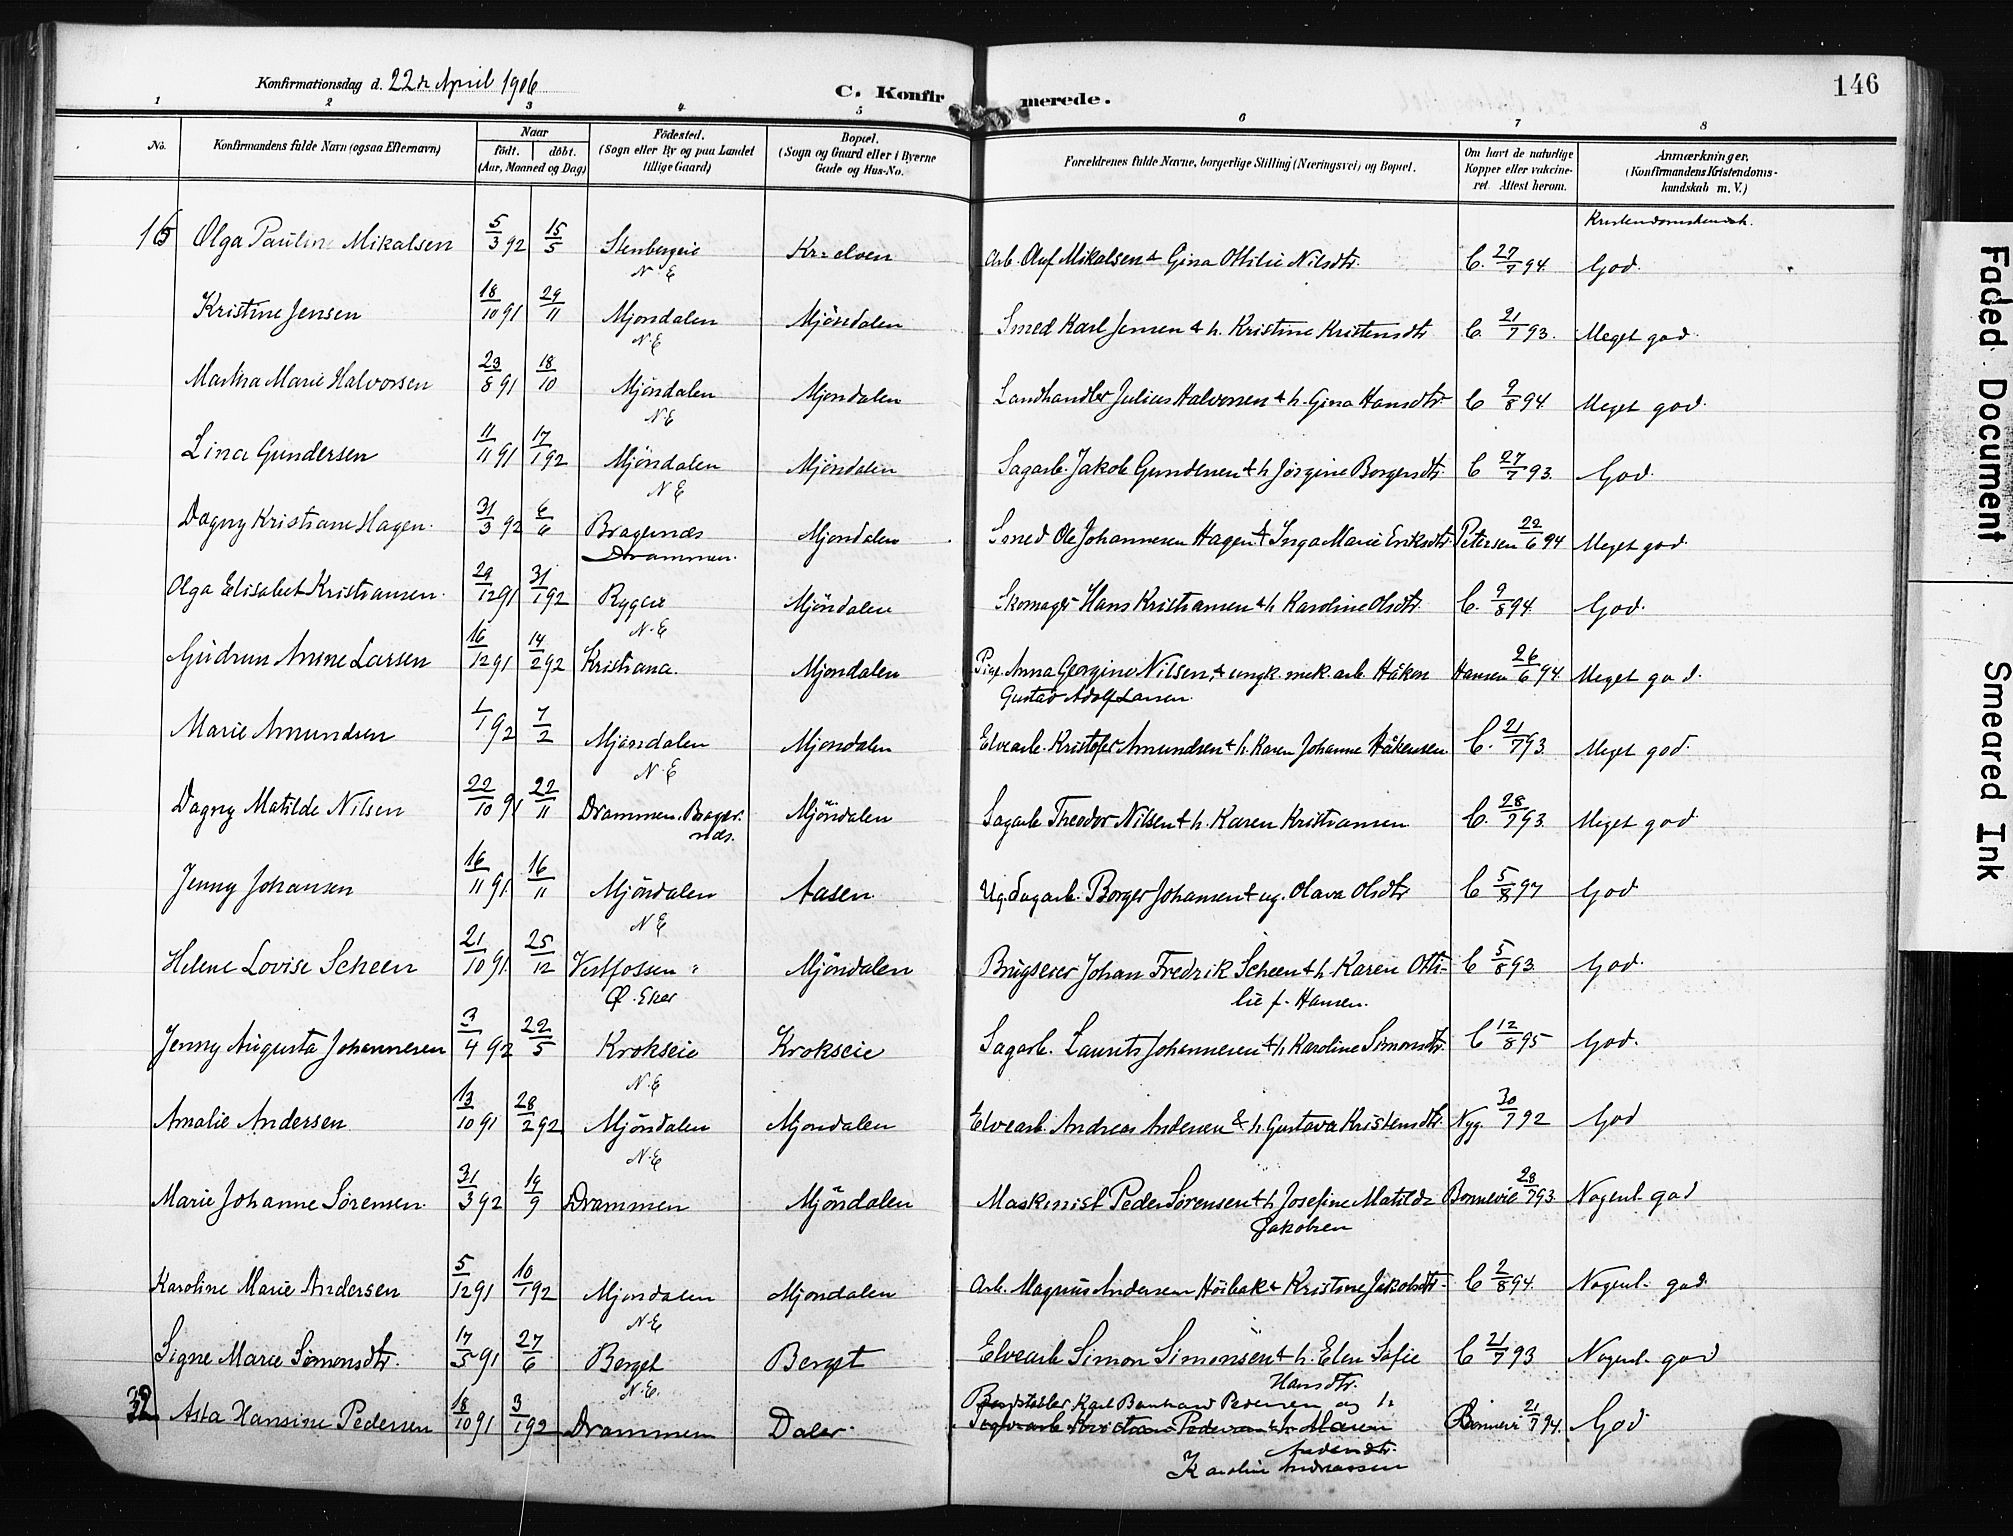 146
Konfirmationsdag d. 22de April 1906
C. Konfirmerede.
1 2 3 4 5 6 7 8
No.
Konfirmandens fulde Navn (ogsaa Efternavn)
Naar
født. døbt.
(Aar, Maaned og Dag)
Fødested.
(Sogn eller By og paa Landet tillige Gaard)
Bopæl.
(Sogn og Gaard eller i Byerne Gade og Hus-No.
Forældrenes fulde Navne, borgerlige Stilling (Næringsvei) og Bopæl.
Om havt de naturlige Kopper eller vaccineret. Attest herom.
Anmærkninger.
(Konfirmandens Kristendomskundskab m. V.)
Kristendomskundsk.
16 Olga Pauline Mikalsen 5/3 92 15/5 Stenbergeie N E Kr=elven Arb. Oluf Mikalsen & Gina Ottilie Nilsdtr. C. 27/7 94 God.
Kristine Jensen 18/10 91 29/11 Mjondalen N E Mjöndalen Smed Karl Jensen & h. Kristine Kristensdtr C. 21/7 93. Meget god.
Martha Marie Halvorsen 23/8 91 18/10 Mjöndalen N E Mjondalen Landhandler Julius Halvorsen & h. Gina Hansdtr C 9/8 94 Meget god.
Lina Gundersen 11/11 91 17/1 92 Mjöndalen N E Mjöndalen Sagarb. Jakob Gundersen & h Jörgine Borgersdtr. C 27/7 93. God.
Dagny Kristiane Hagen. 31/3 92 6/6 Bragernæs Drammen. Mjondalen Smed Ole Johannesen Hagen & Inga Marie Eriksdtr. Petersen 22/6 94 Meget god.
Olga Elisabet Kristiansen. 29/12 91 31/1 92 Ryggeie N. E Mjöndalen Skomager Hans Kristiansen & h Karoline Olsdtr. C. 9/8 94 God.
Gudrun Anine Larsen 16/12 91 14/2 92 Kristiana. Mjondalen Pige Anna Georgine Nilsen, & ungk. mek. arb Håkon Gustav Adolf Larsen Hansen 26/6 94. Meget god.
Marie Amundsen 1/1 92 7/2 Mjöndalen N. E Mjondalen Elvearb. Kristofer Amundsen & h. Karen Johanne Håkensen C. 21/7 93. Meget god.
Dagny Matilde Nilsen 22/10 91 22/11 Drammen. Bragernæs. Mjöndalen Sagarb Theodor Nilsen & h. Karen Kristiansen C. 28/7 93. Meget god
Jenny Johansen 16/11 91. 16/11 Mjöndalen N E Aasen. Ug. Sagarb. Borger Johansen & ug. Olava Olsdtr C 5/8 97 God
Helene Lovise Scheen 21/10 91. 25/12 Vestfossen Ø. Eker Mjöndalen Brugseier Johan Fredrik Scheen & h Karen Ottilie f. Hansen. C 5/8 93. God.
Jenny Augusta Johannesen 3/4 92 22/5 Krokseie N. E Krokseie Sagarb. Laurits Johannesen & h Karoline Simonsdtr. C 12/8 95 God.
Amalie Andersen 13/10 91 28/2 92 Mjöndalen N. E Mjondalen Elvearb. Andreas Andersen & h. Gustava Kristensdtr. Nyg. 30/7 92 God
Marie Johanne Sörensen. 31/3 92 19/9 Drammen Mjöndalen Maskinist Peder Sörensen & h Josefine Matilde Jakobsen Bonnevie 28/7 93. Nogenl. god
Karoline Marie Andersen 5/12 91 10/1 92 Mjondalen N. E Mjondalen Arb. Magnus Andersen Höibak & Kristine Jakobsdtr. C 2/8 94. Nogenl. god
Signe Marie Simonsdtr. 17/5 91 27/6 Berget N. E. Berget Elvearb Simon Simonsen & h. Elen Sofie Hansdtr. C 21/7 93 Nogenl. god
32 Asta Hansine Pedersen 18/10 91 3/1 92 Drammen Daler Karl Bernhard Pedersen og h. Karoline Andreassen Bonnevi 21/7 94. God
Faded Document
Smeared Ink